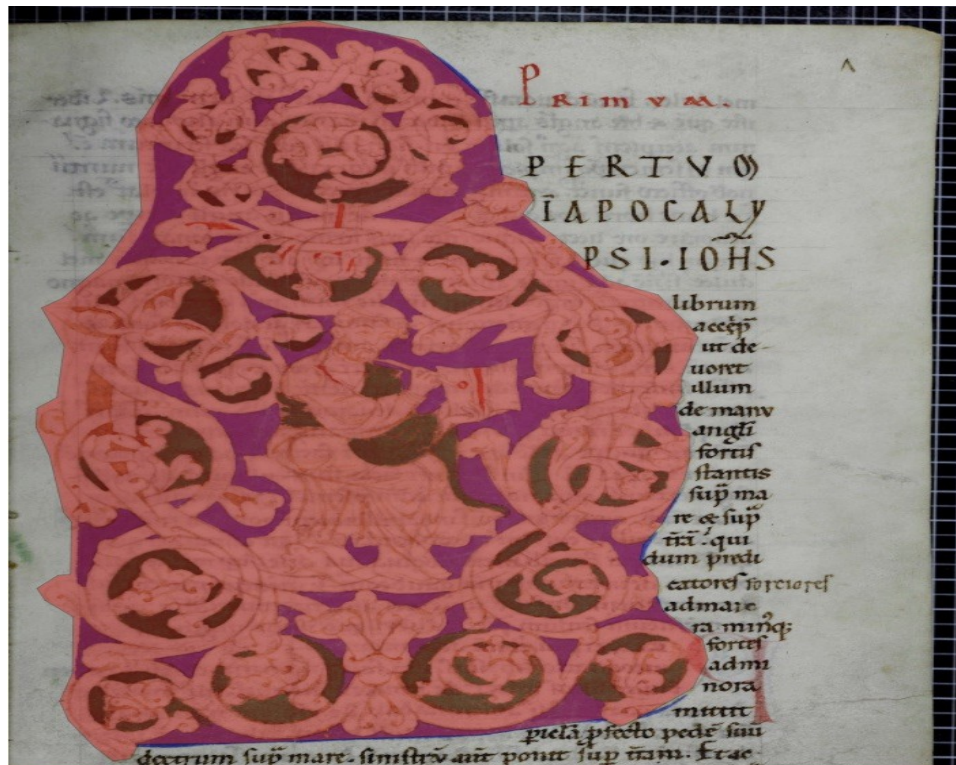 PRIMUM.
PERTVM
ĪAPOCALY
PSI·IOH̄S
librum
accep̄
ut de-
uoret
illum
de manv
angli
fortis
stantis
sup̄ ma
re & sup̄
qui
dum predi
catores forciores
admare
fortes
admi
nora
mittit
pedē suū
dextrum sup̄ mare. sinistrū aūt ponit sup̄